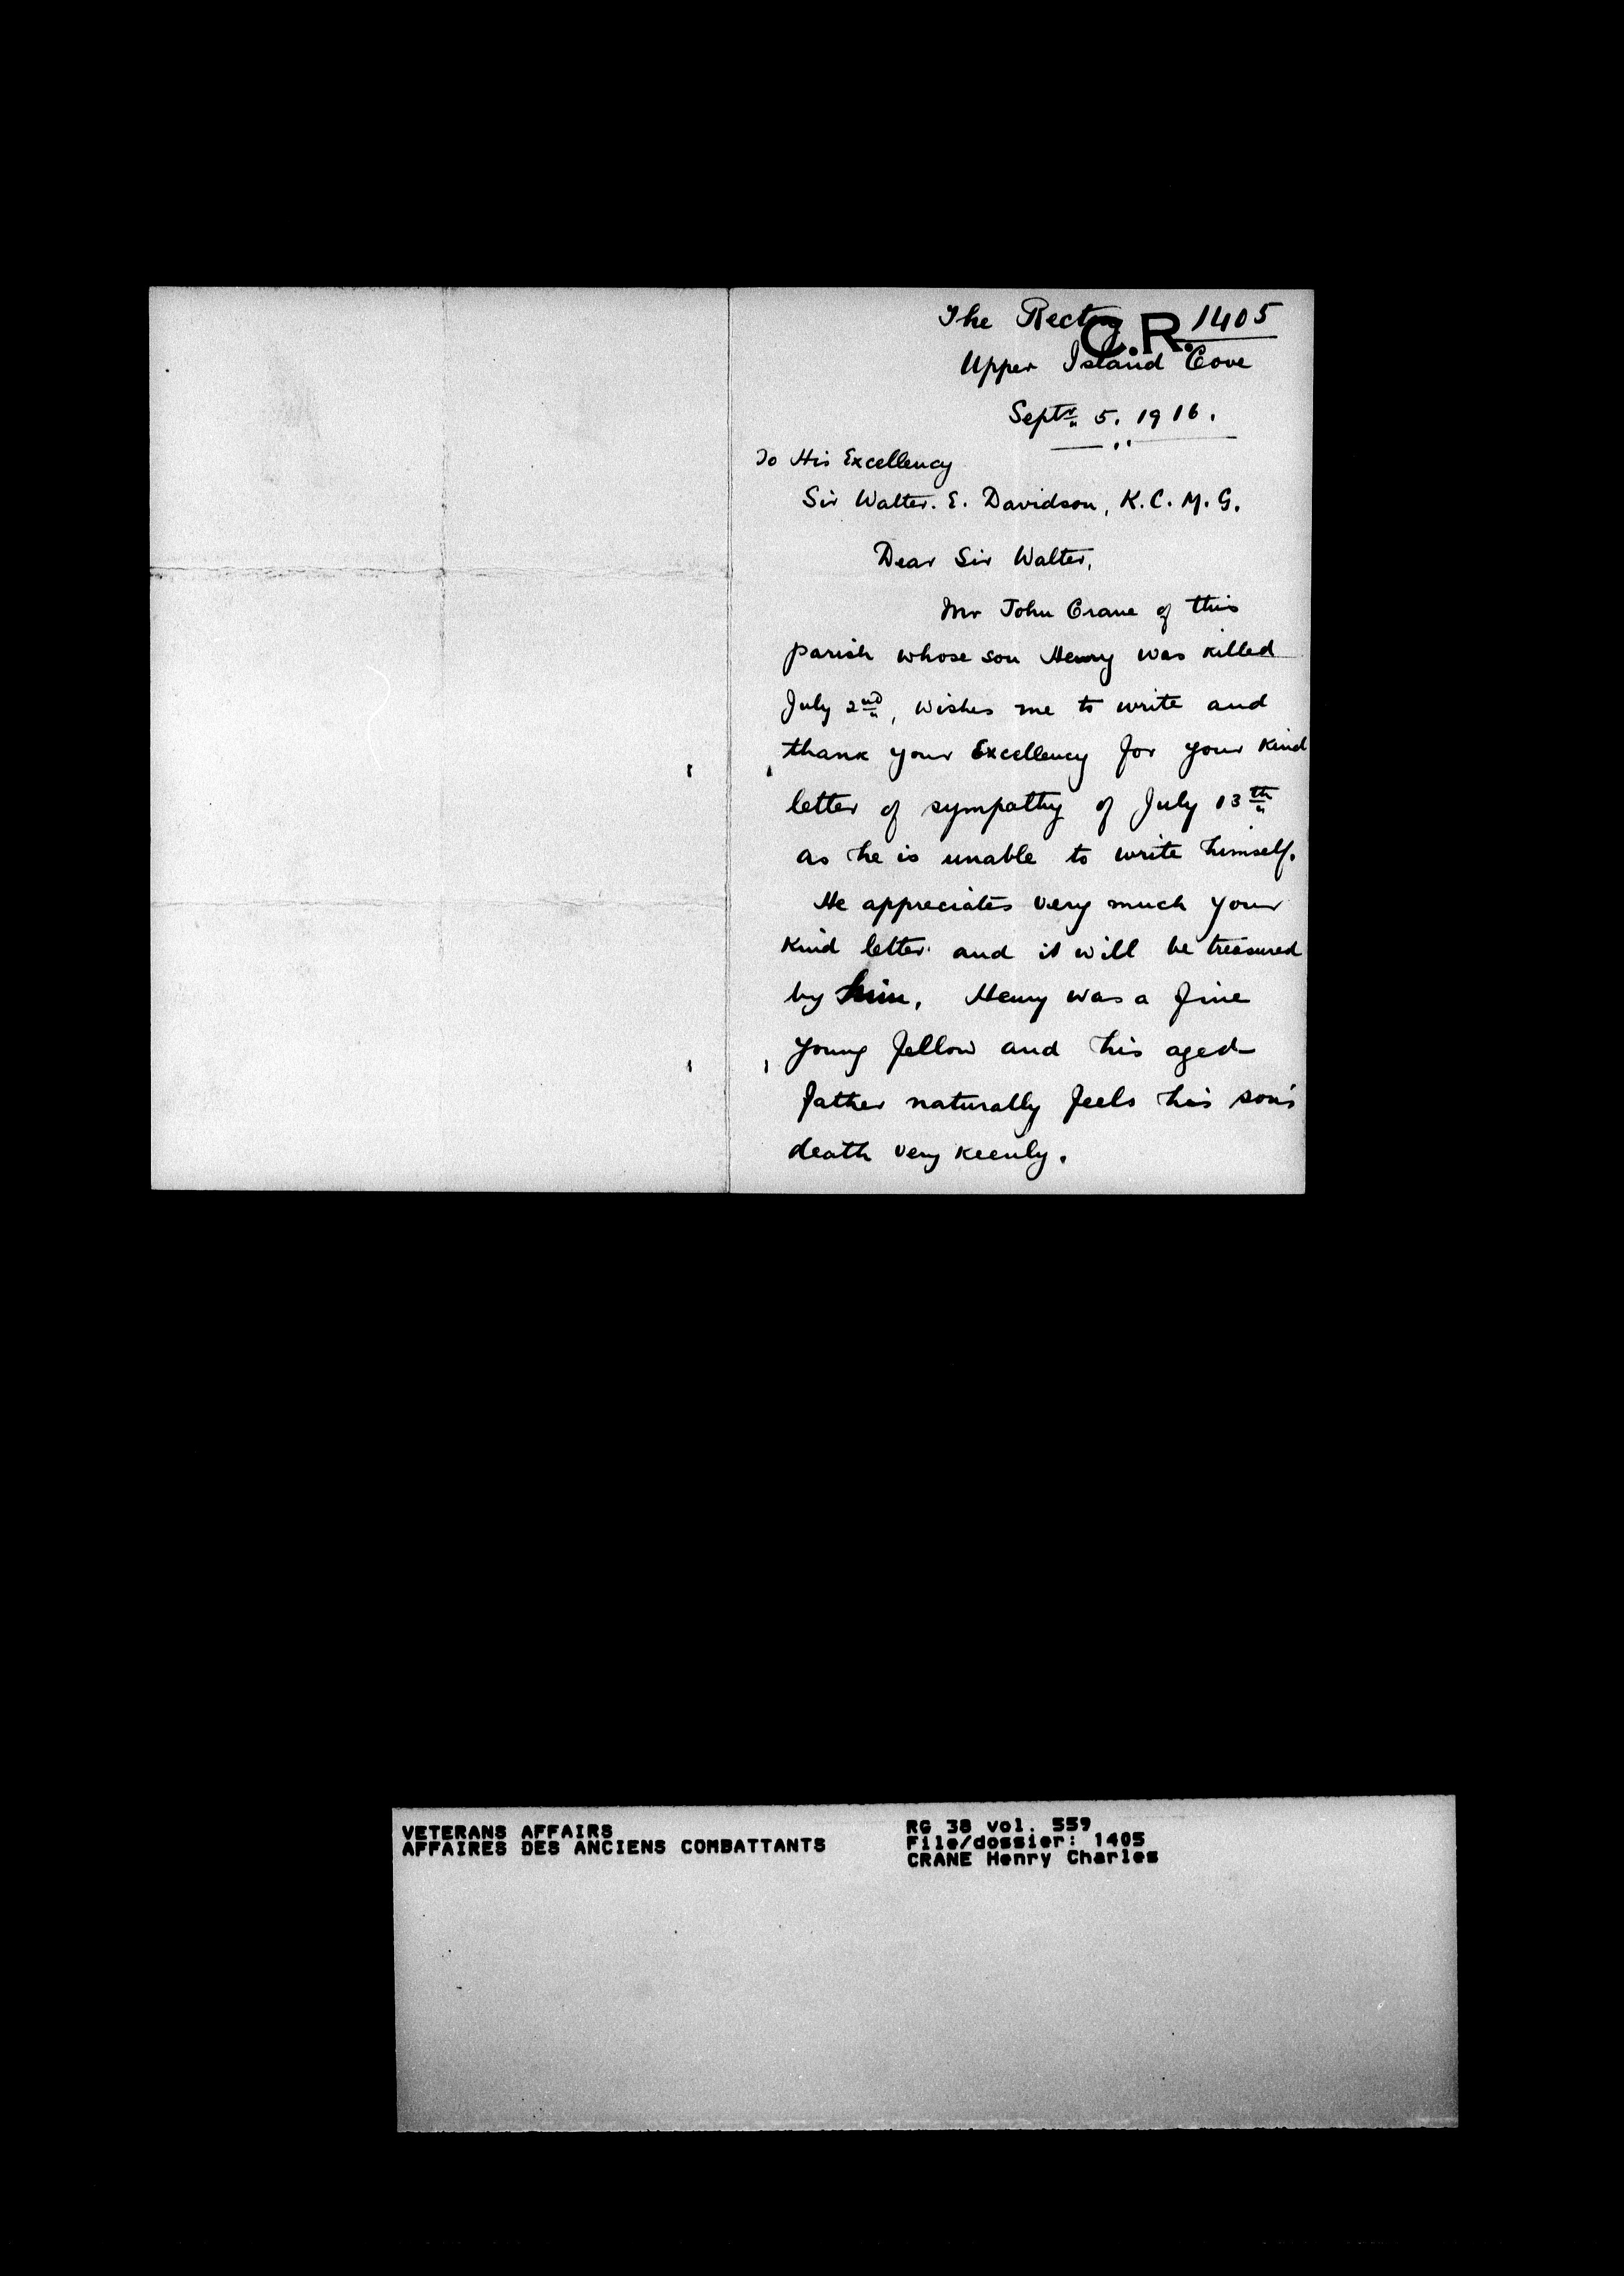 The Rectory C.R. 1405
Upper Island Cove
Septr. 5. 1916.
To His Excellency
Sir Walter. E. Davidson, K.C.M.G.
Dear Sir Walter,
Mr John Crane of this
parish whose son Henry was killed
July 2nd, wishes me to write and
thank your Excellency for your kind
letter of sympathy of July 13th
as he is unable to write himself.
He appreciates very much your
kind letter and it will be treasured
by him. Henry was a fine
young fellow and his aged
father naturally feels his son's
death very keenly.
VETERANS AFFAIRS
AFFAIRES DES ANCIENS COMBATTANTS
RG 38 vol. 559
File/dossier: 1405
CRANE Henry Charles